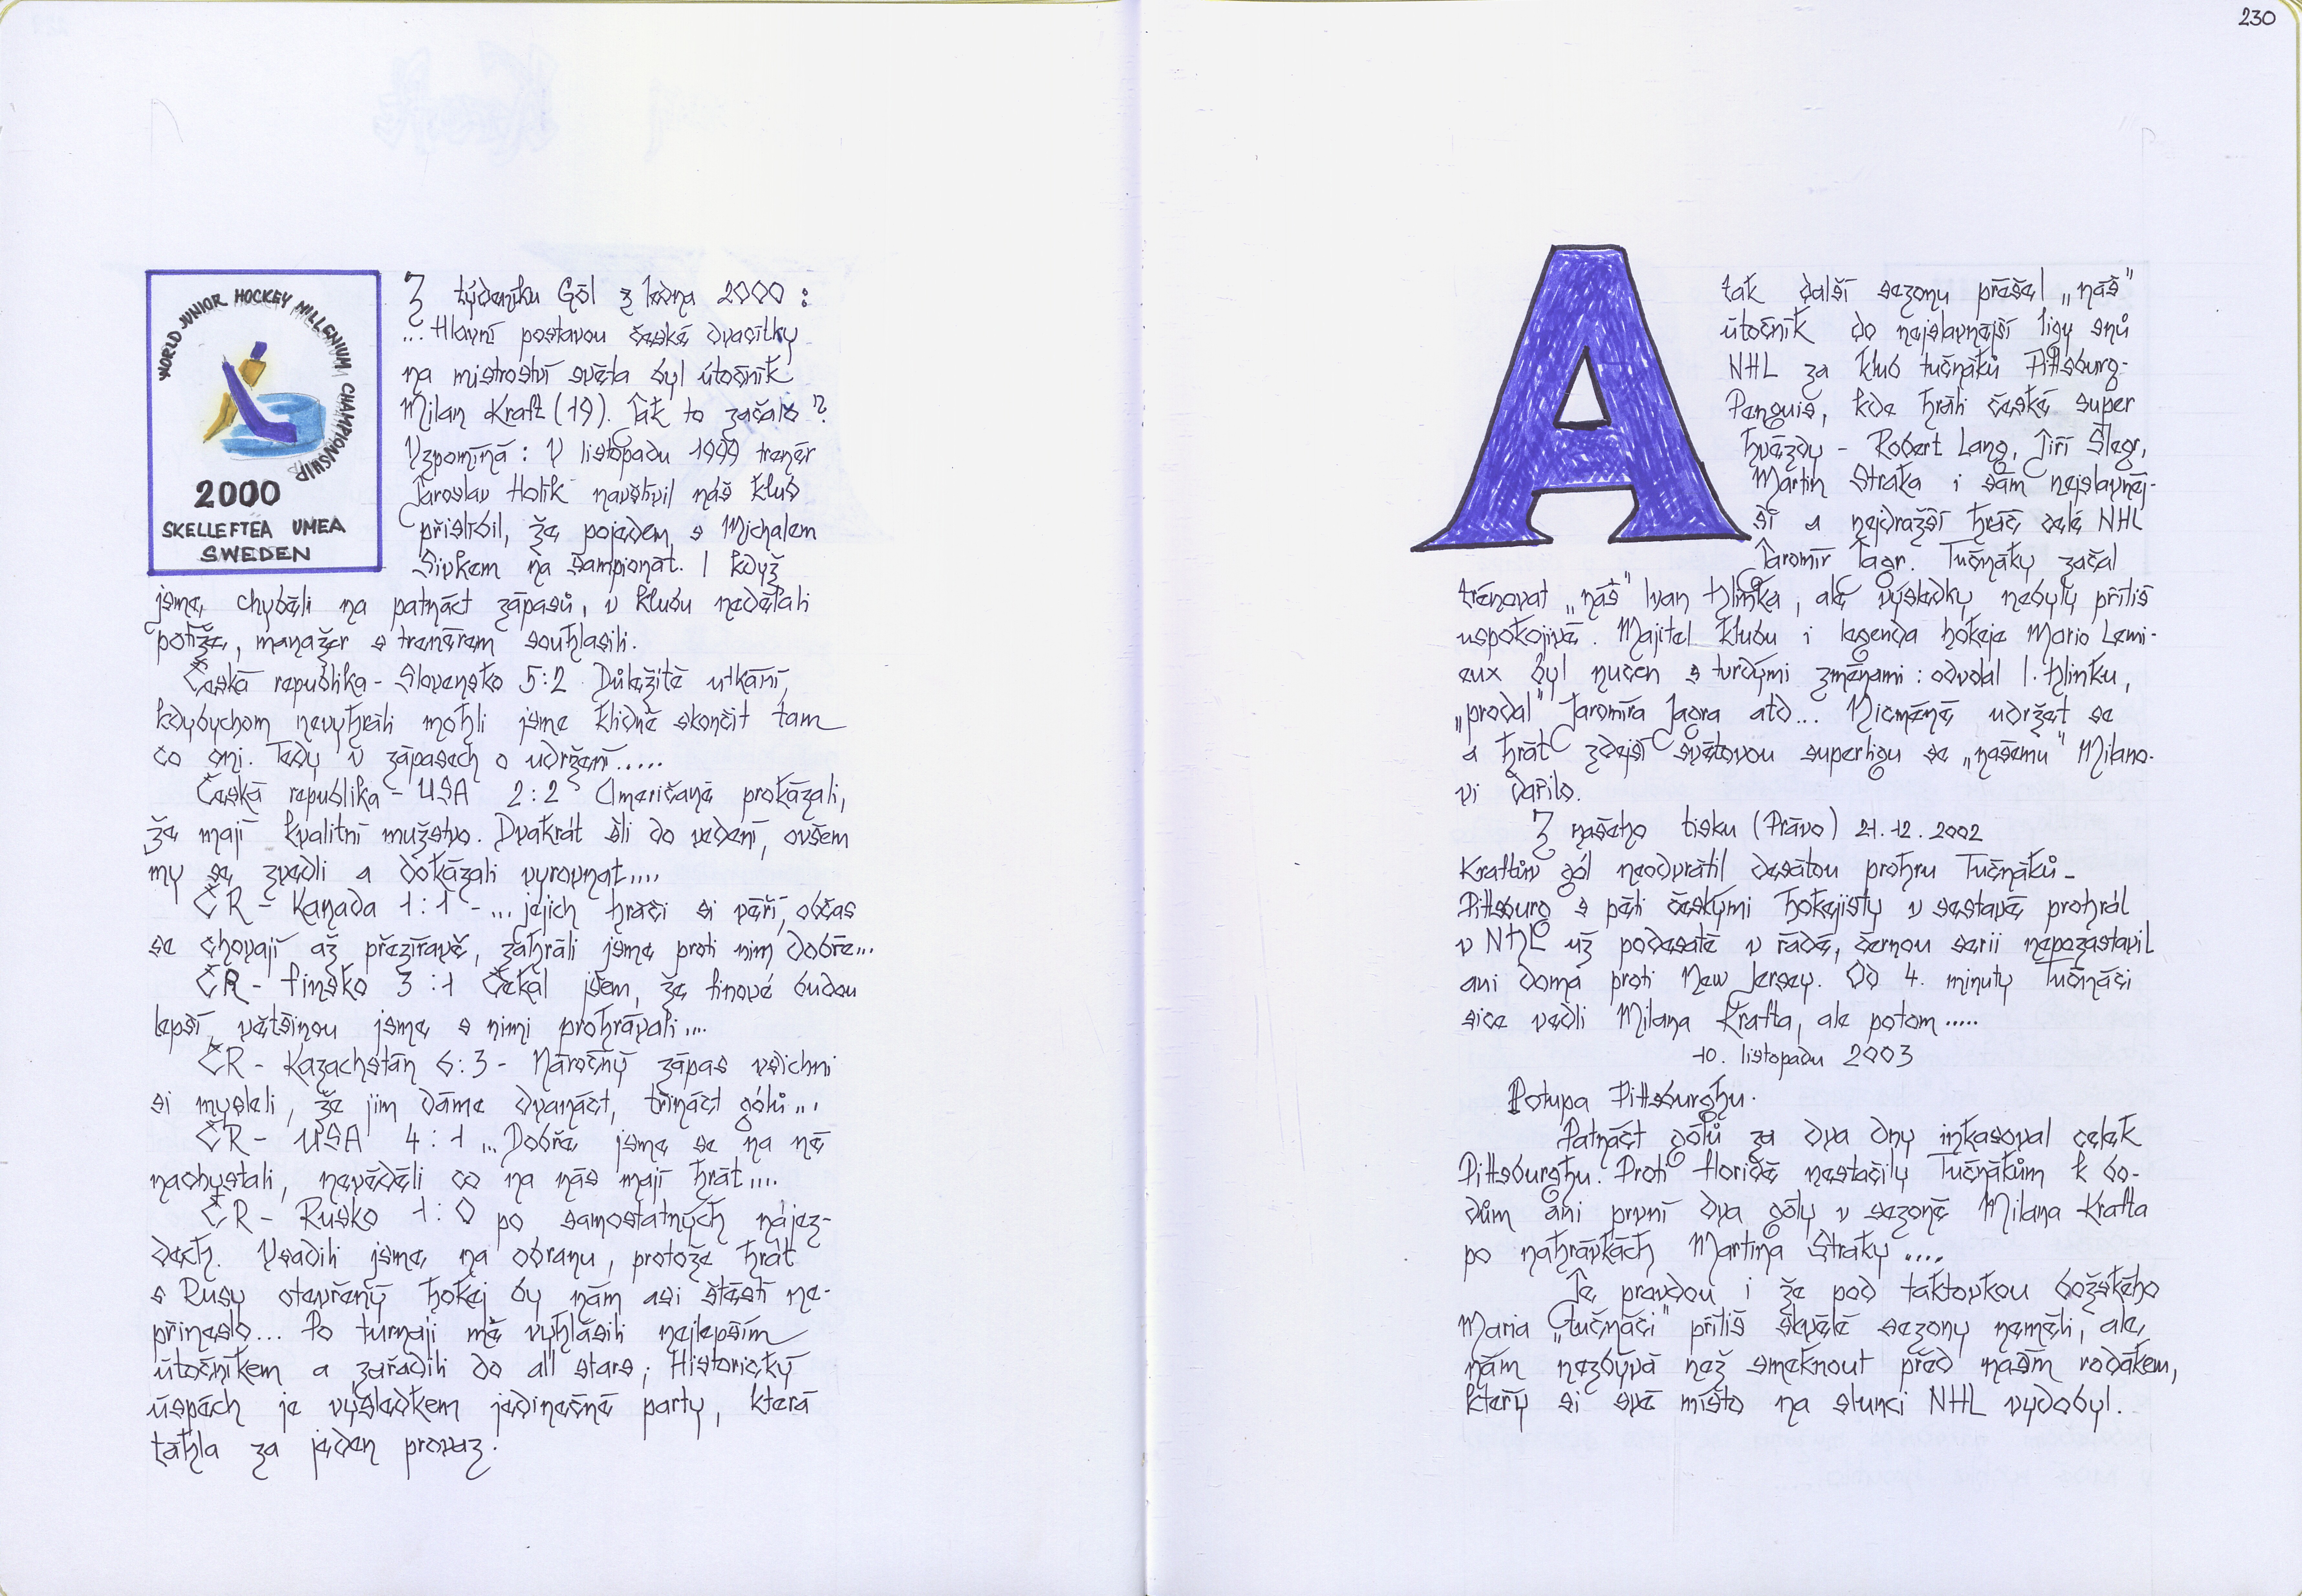 WORLD JUNIOR HOCKEY MILLENIUM CHAMPIONSHIP
2000
SKELLEFTEA UMEA
SWEDEN
Z týdeníku Gól z ledna 2000 :
... Hlavní postavou české dvacítky
na mistroství světa byl útočník
Milan Kraft (19). Jak to začalo ?
Vzpomíná : V listopadu 1999 trenér
Jaroslav Holík navštívil náš klub
přislíbil, že pojedem s Michalem
Sivkem na šampionát. I když
jsme chyběli na patnáct zápasů, v klubu nedělali
potíže, manažer s trenérem souhlasili.
Česká republika - Slovensko 5:2 Důležité utkání,
kdybychom nevyhráli mohli jsme klidně skončit tam
co oni. Tedy v zápasech o udržení.....
Česká republika - USA 2:2 Američané prokázali,
že mají kvalitní mužstvo. Dvakrát šli do vedení, ovšem
my se zvedli a dokázali vyrovnat....
ČR - Kanada 1:1 - ... jejich hráči si věří, občas
se chovají až přezíravě, zahráli jsme proti nim dobře...
ČR - Finsko 3:1 Čekal jsem, že Finové budou
lepší, většinou jsme s nimi prohrávali....
ČR - Kazachstán 6:3 - Náročný zápas všichni
si mysleli, že jim dáme dvanáct, třináct gólů....
ČR - USA 4:1 ... Dobře jsme se na ně
nachystali, nevěděli co na nás mají hrát....
ČR - Rusko 1:0 po samostatných nájez-
dech. Vsadili jsme na obranu, protože hrát
s Rusy otevřený hokej by nám asi štěstí ne-
přineslo... Po turnaji mě vyhlásili nejlepším
útočníkem a zařadili do all stars; Historický
úspěch je výsledkem jedinečné party, která
táhla za jeden provaz.
230
A
tak další sezonu přešel „náš"
útočník do nejslavnější ligy snů
NHL za klub tučňáků Pittsburg-
Penguis, kde hráli české super
hvězdy - Robert Lang, Jiří Šlegr,
Martin Straka i sám nejslavněj-
ší a nejdražší hráč celé NHL
Jaromír Jágr. Tučňáky začal
trénovat „náš" Ivan Hlinka, ale výsledky nebyly příliš
uspokojivé. Majitel klubu i legenda hokeje Mario Lemi-
eux byl nucen s tvrdými změnami : odvolal I. Hlinku,
„prodal" Jaromíra Jágra atd... Nicméně udržet se
a hrát zdejší světovou superligu se „našemu" Milano-
vi dařilo.
Z našeho tisku (Právo) 21.12.2002
Kraftův gól neodvrátil desátou prohru Tučňáků -
Pittsburg s pěti českými hokejisty v sestavě prohrál
v NHL už podesáté v řadě, černou serii nepozastavil
ani doma proti New Jersey. Od 4. minuty Tučňáči
sice vedli Milana Krafta, ale potom.....
10. listopadu 2003
Potupa Pittsburghu.
Patnáct gólů za dva dny inkasoval celek
Pittsburghu. Proti Floridě nestačily Tučňákům k bo-
dům ani první dva góly v sezoně Milana Krafta
po nahrávkách Martina Straky ....
Je pravdou i že pod taktovkou božského
Maria „tučňáči" příliš skvělé sezony neměli, ale
nám nezbývá než smeknout před naším rodákem,
který si své místo na slunci NHL vydobyl.